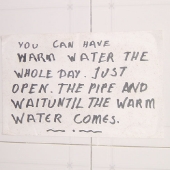 YOU CAN HAVE
WARM WATER THE
WHOLE DAY. JUST
OPEN. THE PIPE AND
WAITUNTIL THE WARM
WATER COMES.